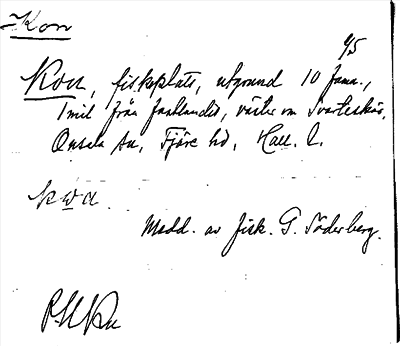 Kon
Kon, fiskeplats, utgrund 10 famn.,
1 mil från fastlandet, väster om Svarteskär,
Onsala sn, Fjäre hd, Hall. l.
Medd. av fisk. G. Söderberg.